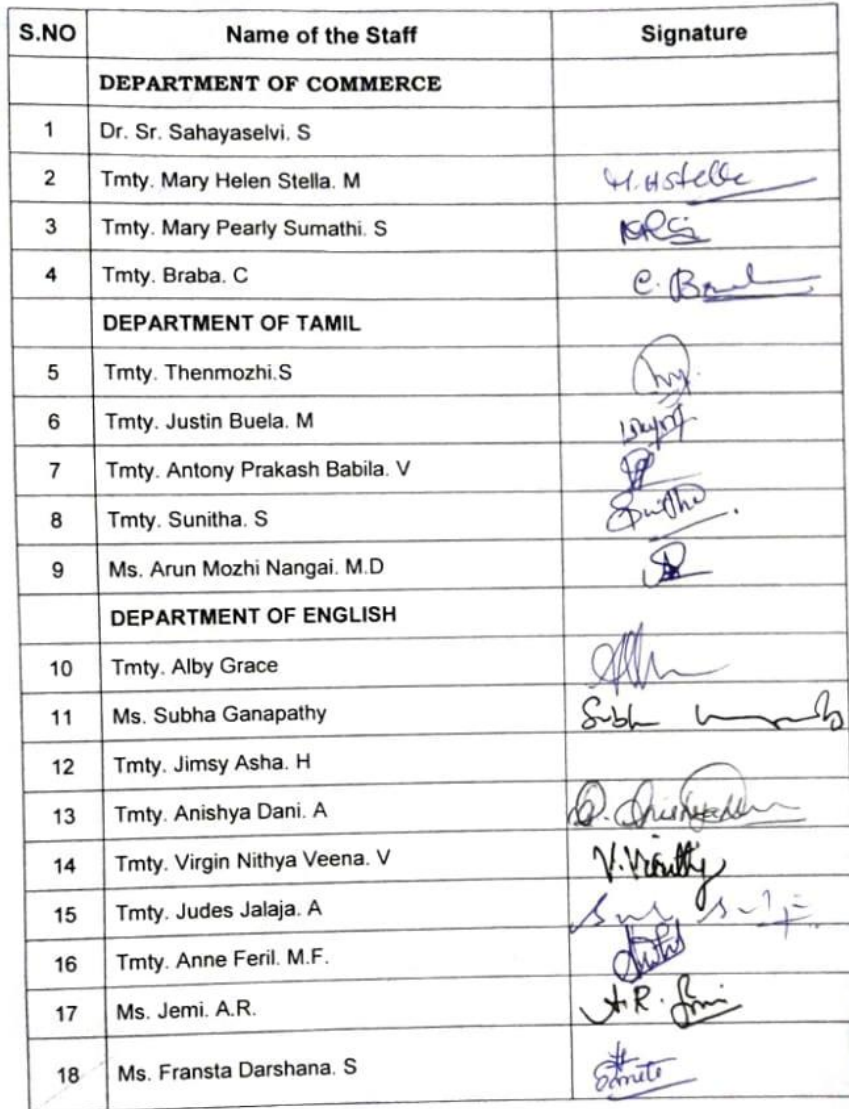 S.NO Name of the Staff Signature
DEPARTMENT OF COMMERCE
1 Dr. Sr. Sahayaselvi. S
2 Tmty. Mary Helen Stella. M M.HStella
3 Tmty. Mary Pearly Sumathi. S
4 Tmty. Braba. C C.
DEPARTMENT OF TAMIL
5 Tmty. Thenmozhi.S
6 Tmty. Justin Buela. M
7 Tmty. Antony Prakash Babila. V
8 Tmty. Sunitha. S
9 Ms. Arun Mozhi Nangai. M.D
DEPARTMENT OF ENGLISH
10 Tmty. Alby Grace
11 Ms. Subha Ganapathy
12 Tmty. Jimsy Asha. H
13 Tmty. Anishya Dani. A
14 Tmty. Virgin Nithya Veena. V
15 Tmty. Judes Jalaja. A
16 Tmty. Anne Feril. M.F.
17 Ms. Jemi. A.R. A.R. Jemi
18 Ms. Fransta Darshana. S